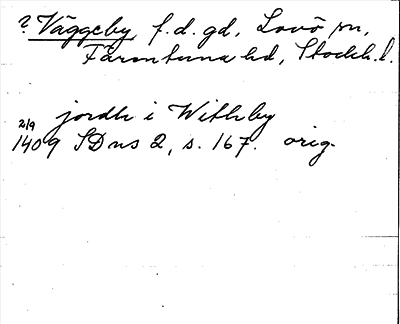 ? Väggeby, f.d. gd, Lovö sn,
Färentuna hd, Stockh. l.
jordh i Withby
2/9
1409 SD ns 2, s. 167. orig.